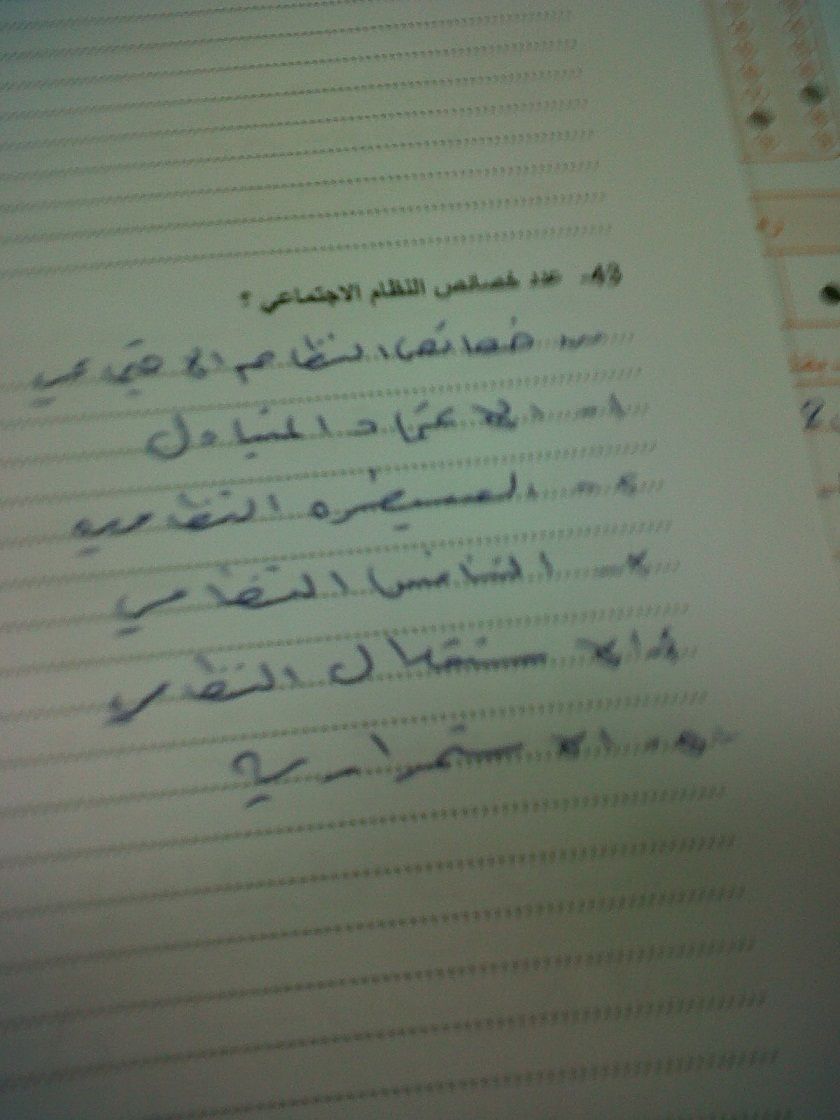 43- عدد خصائص النظام الاجتماعي ؟
خصائص النظام الاجتماعي
1- الاعتماد المتبادل
2- السيطره النظاميه
3- التنافس النظامي
4- الاستقلال النظامي
5- الاستمرارية